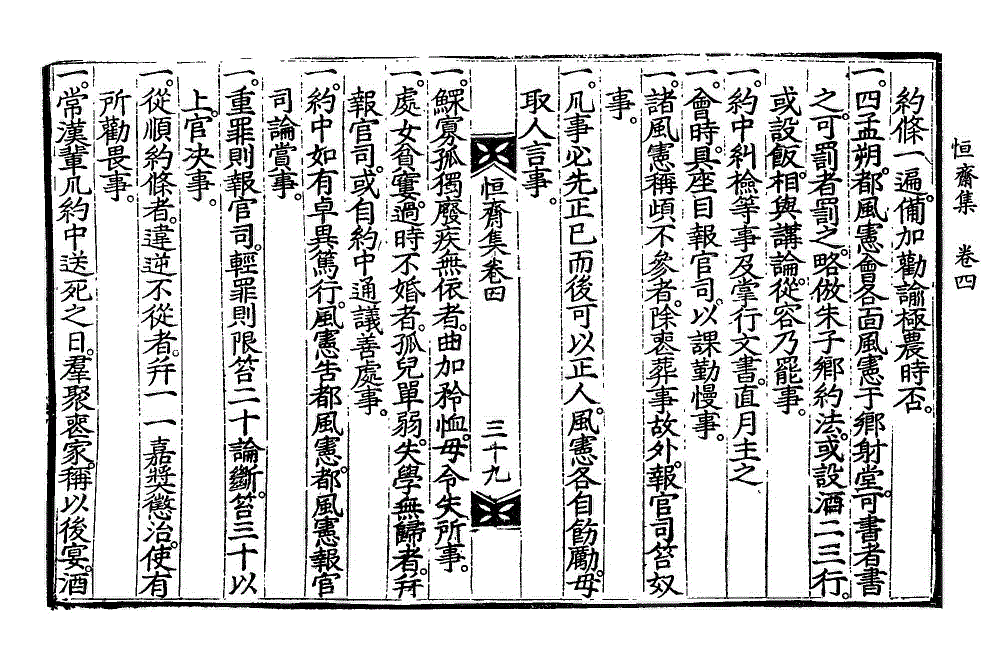 恒齋集 卷四
約條一遍。備加勸諭極農時否。
一。四孟朔。都風憲會各面風憲于鄉射堂。可書者書
之。可罰者罰之。略倣朱子鄉約法。或設酒二三行。
或設飯。相與講論。從容乃罷事。
一。約中糾檢等事及掌行文書。直月主之
一。會時。具座目報官司。以課勤慢事。
一。諸風憲稱頉不參者。除喪葬事故外。報官司笞奴
事。
一。凡事必先正己而後可以正人。風憲各自飭勵。毋
取人言事。
恒齋集卷四
三十九
一。鰥寡孤獨廢疾無依者。曲加矜恤。毋令失所事。
一。處女貧窶。過時不婚者。孤兒單弱。失學無歸者。幷
報官司。或自約中通議善處事。
一。約中如有卓異篤行。風憲告都風憲。都風憲報官
司論賞事。
一。重罪則報官司。輕罪則限笞二十論斷。笞三十以
上。官决事。
一。從順約條者。違逆不從者。幷一一嘉奬懲治。使有
所勸畏事。
一。常漢輩凡約中送死之日。羣聚喪家。稱以後宴。酒